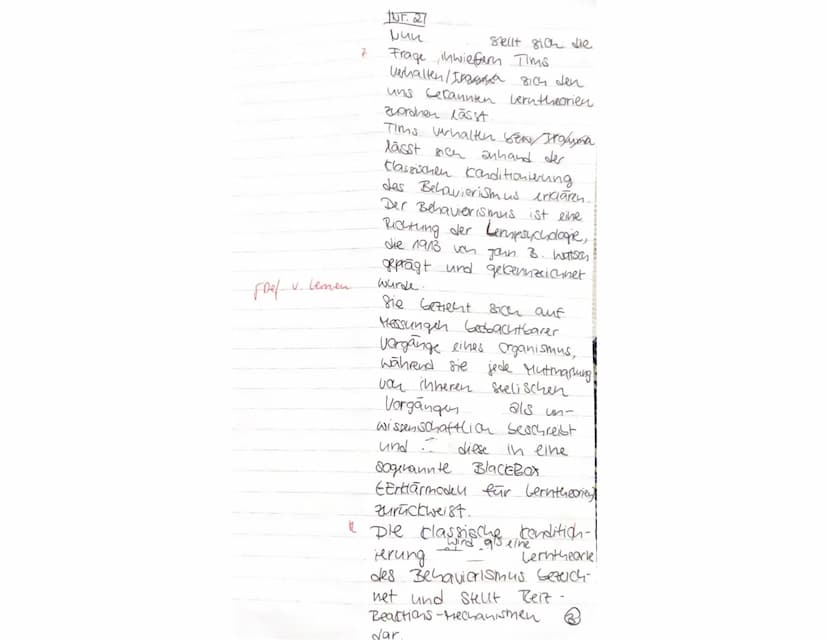 Nr. 2
Nun stellt sich die
Frage, inwiefern Tims
Verhalten/ sich den
uns bekannten Lerntheorien
zuordnen lässt.
Tims Verhalten
lässt sich anhand der
klassischen Konditionierung
des Behaviorismus erklären.
Der Behaviorismus ist eine
Richtung der Lernpsychologie,
die 1913 von John B. Watson
geprägt und gekennzeichnet
wurde.
Def. v. Lernen
Sie bezieht sich auf
Messungen beobachtbarer
Vorgänge eines Organismus,
während sie jede Mutmaßung
von inneren seelischen
Vorgängen als un-
wissenschaftlich beschreibt
und diese in eine
sogenannte BlackBox
(Erklärmodell für Lerntheorien)
zurückweist.
Die klassische Konditio-
nierung wird als eine Lerntheorie
des Behaviorismus bezeich-
net und stellt Reiz-
Reaktions-Mechanismen
dar.